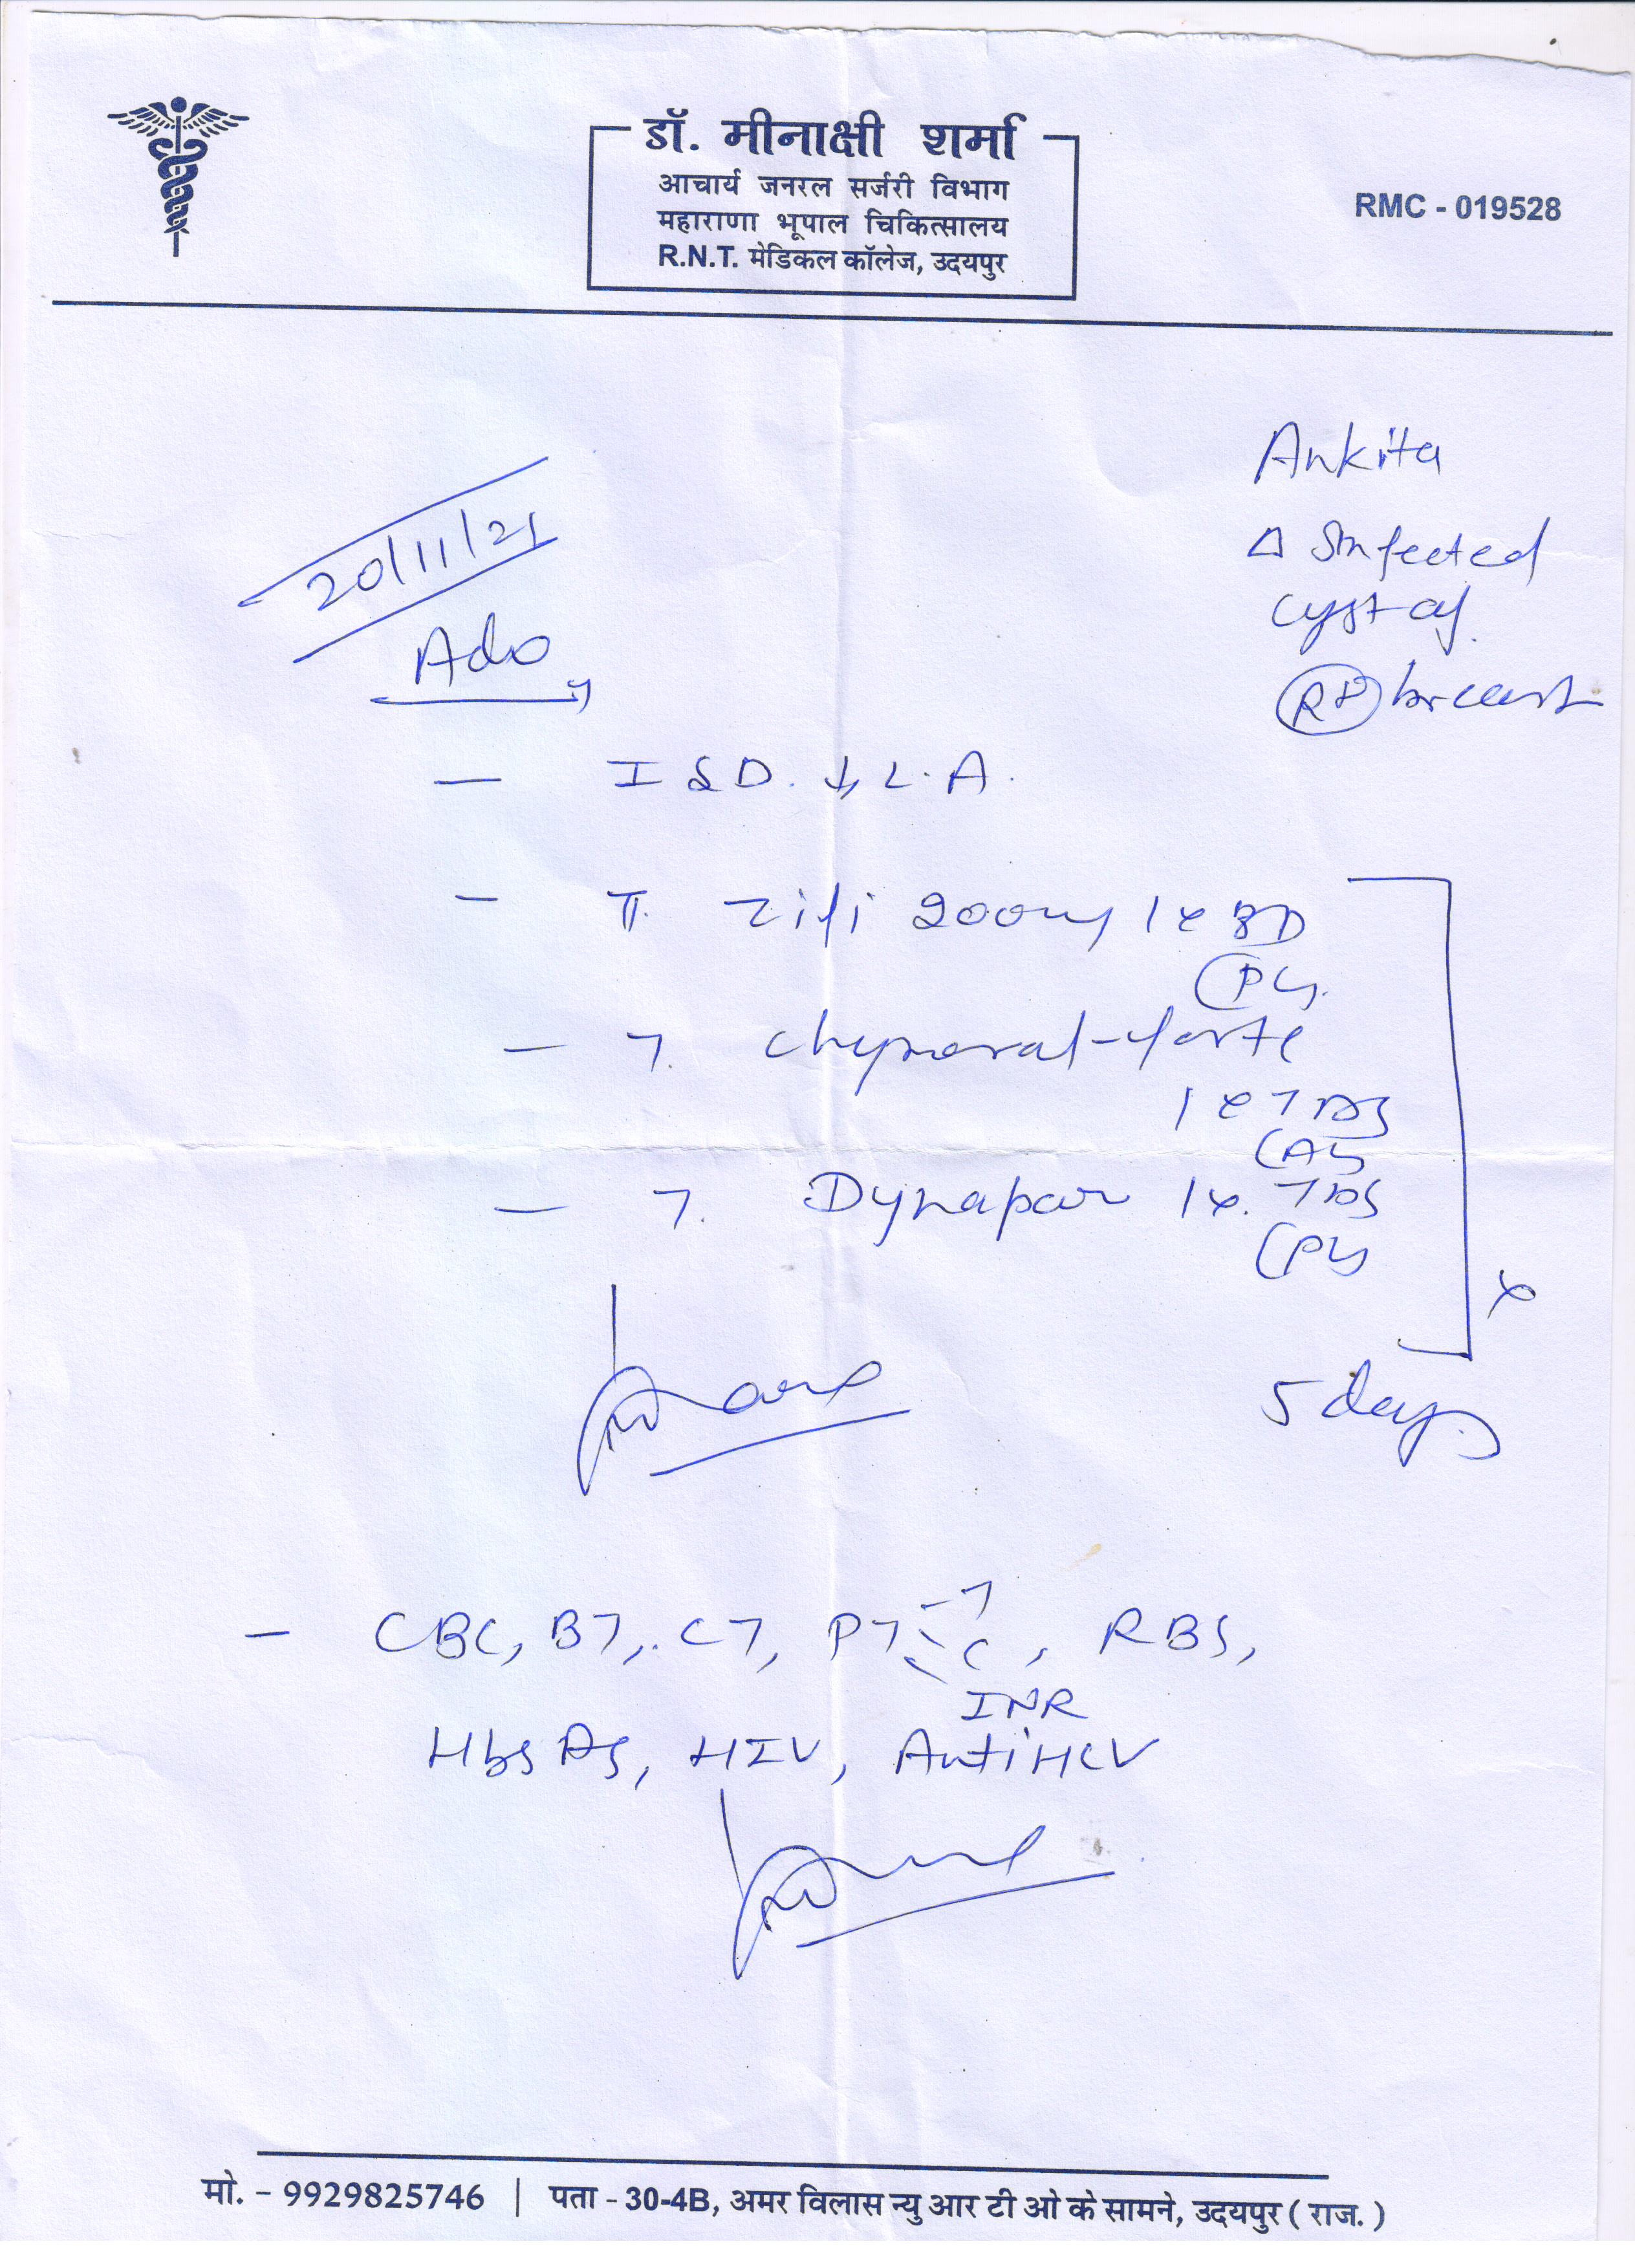 डॉ. मीनाक्षी शर्मा
आचार्य जनरल सर्जरी विभाग
महाराणा भूपाल चिकित्सालय
R.N.T. मेडिकल कॉलेज, उदयपुर
RMC - 019528
Ankita
Δ Infected
cyst of
Rt breast
20/11/21
Adv
- I & D. ↓ L.A.
- T. Zifi 200mg 1 x BD
(PC)
- T. Chymoral-forte
1 x TDS
(AC)
- T. Dynapar 1 x TDS
(PC)
x
5 days
- CBC, BT, CT, PT, T, C, INR, RBS,
HbsAg, HIV, Anti HCV
मो. – 9929825746 | पता - 30-4B, अमर विलास न्यु आर टी ओ के सामने, उदयपुर ( राज. )